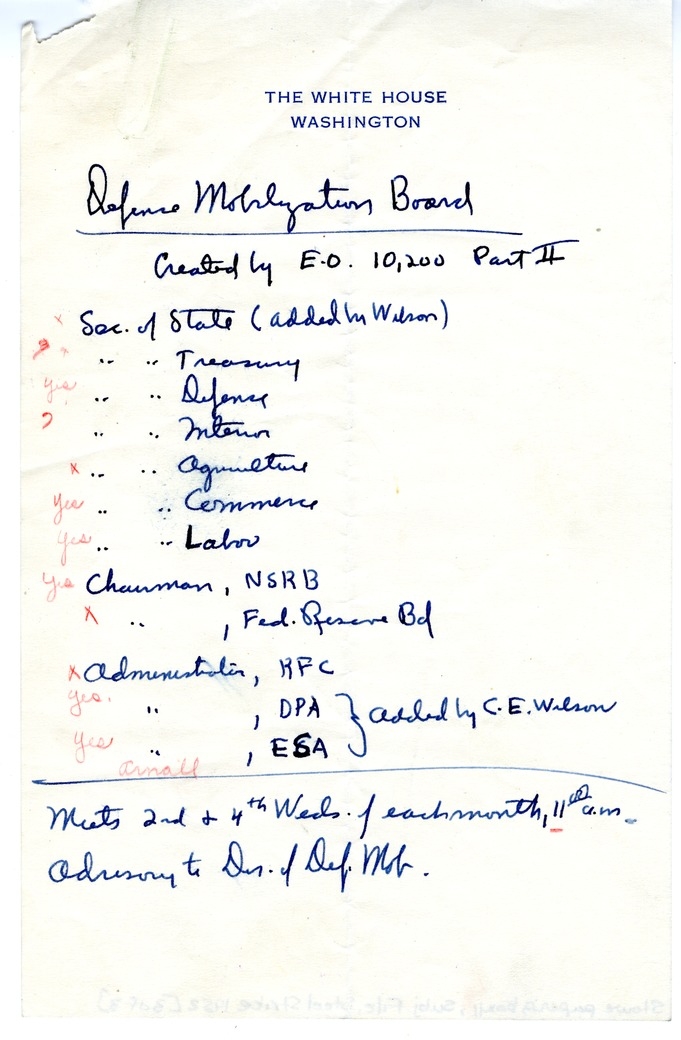 THE WHITE HOUSE
WASHINGTON
Defense Mobilization Board
Created by E.O. 10,200 Part II
x Sec. of State (added by Wilson)
? x " " Treasury
yes " " Defense
? " " Interior
x " " Agriculture
yes " " Commerce
yes " " Labor
yes Chairman, NSRB
x " , Fed. Reserve Bd
x Administrator, RFC
yes. " , DPA } added by C.E. Wilson
yes " , ESA
Arnall
Meets 2nd & 4th Weds. of each month, 11 00 a.m.
Advisory to Dir. of Def. Mob.